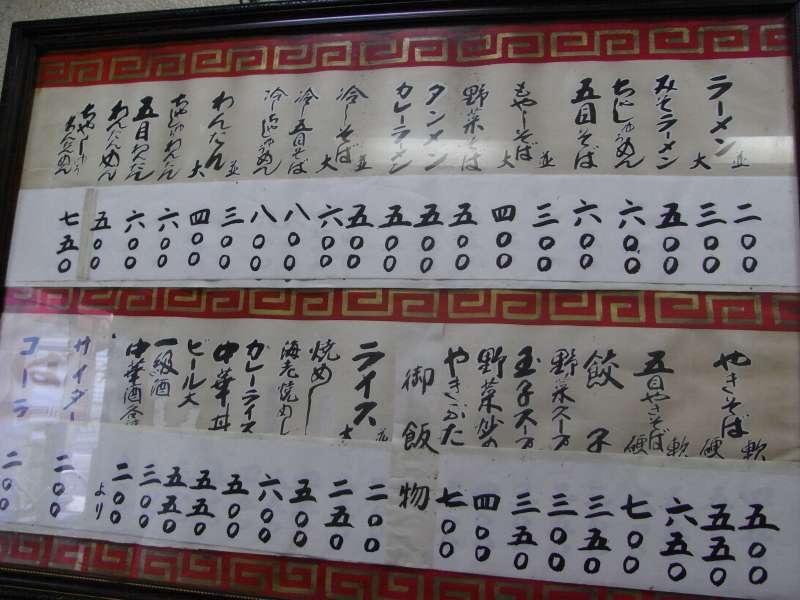 ラーメン 並 二〇〇
大 三〇〇
みそラーメン 五〇〇
ちゃしゅうめん 六〇〇
五目そば 六〇〇
もやしそば 並 三〇〇
大 四〇〇
野菜そば 五〇〇
タンメン 五〇〇
カレーラーメン 五〇〇
冷しそば 並 五〇〇
大 六〇〇
冷し五目そば 八〇〇
冷しちゃしゅうめん 八〇〇
わんたん 並 三〇〇
大 四〇〇
ちゃしゅうわんたん 六〇〇
五目わんたん 六〇〇
わんたんめん 五〇〇
ちゃしゅうわんたんめん 七五〇
やきそば 軟 五〇〇
硬 五五〇
五目やきそば 軟 六五〇
硬 七〇〇
餃子 三五〇
野菜スープ 三〇〇
玉子スープ 三五〇
野菜炒め 四〇〇
やきぶた 七〇〇
御飯物
ライス 並 二〇〇
大 二五〇
焼めし 五〇〇
海老焼めし 六〇〇
カレーライス 五〇〇
中華丼 五五〇
ビール大 五五〇
一級酒 三〇〇
中華酒各種 二〇〇より
サイダー 二〇〇
コーラ 二〇〇